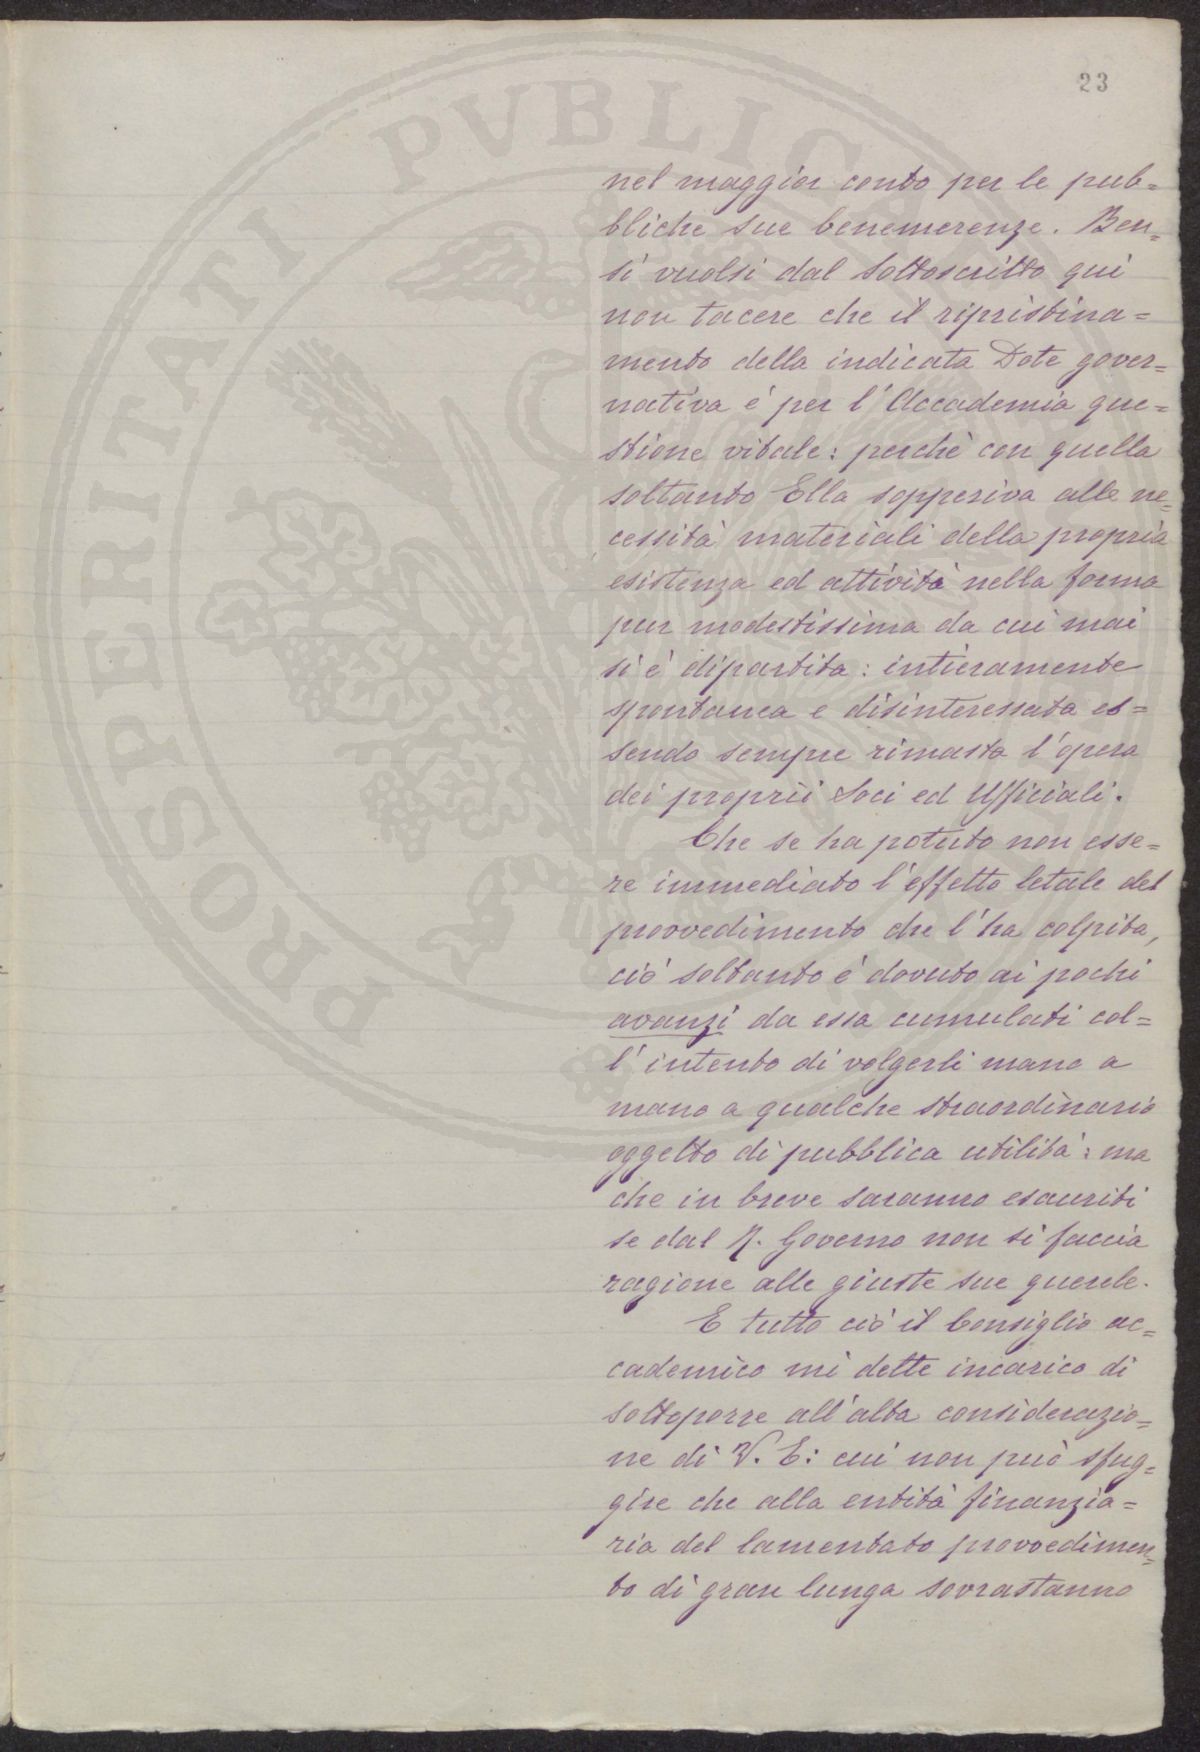 23
nel maggior conto per le pub=
bliche sue benemerenze. Ben=
sì vuolsi dal sottoscritto qui
non tacere che il ripristina=
mento della indicata Dote gover=
nativa è per l'Accademia que=
stione vitale: perchè con quella
soltanto Ella sopperiva alle ne=
cessità materiali della propria
esistenza ed attività nella forma
pur modestissima da cui mai
si è dipartita: intieramente
spontanea e disinteressata es=
sendo sempre rimasta l'opera
dei proprii Soci ed Ufficiali.
Che se ha potuto non esse=
re immediato l'effetto letale del
provvedimento che l'ha colpita,
ciò soltanto è dovuto ai pochi
avanzi da essa cumulati col=
l'intento di volgerli mano a
mano a qualche straordinario
oggetto di pubblica utilità: ma
che in breve saranno esauriti
se dal R. Governo non si faccia
ragione alle giuste sue querele.
E tutto ciò il Consiglio ac=
cademico mi dette incarico di
sottoporre all'alta considerazio=
ne di V. E: cui non può sfug=
gire che alla entità finanzia=
ria del lamentato provvedimen=
to di gran lunga sovrastanno
PROSPERITATI PVBLICAE